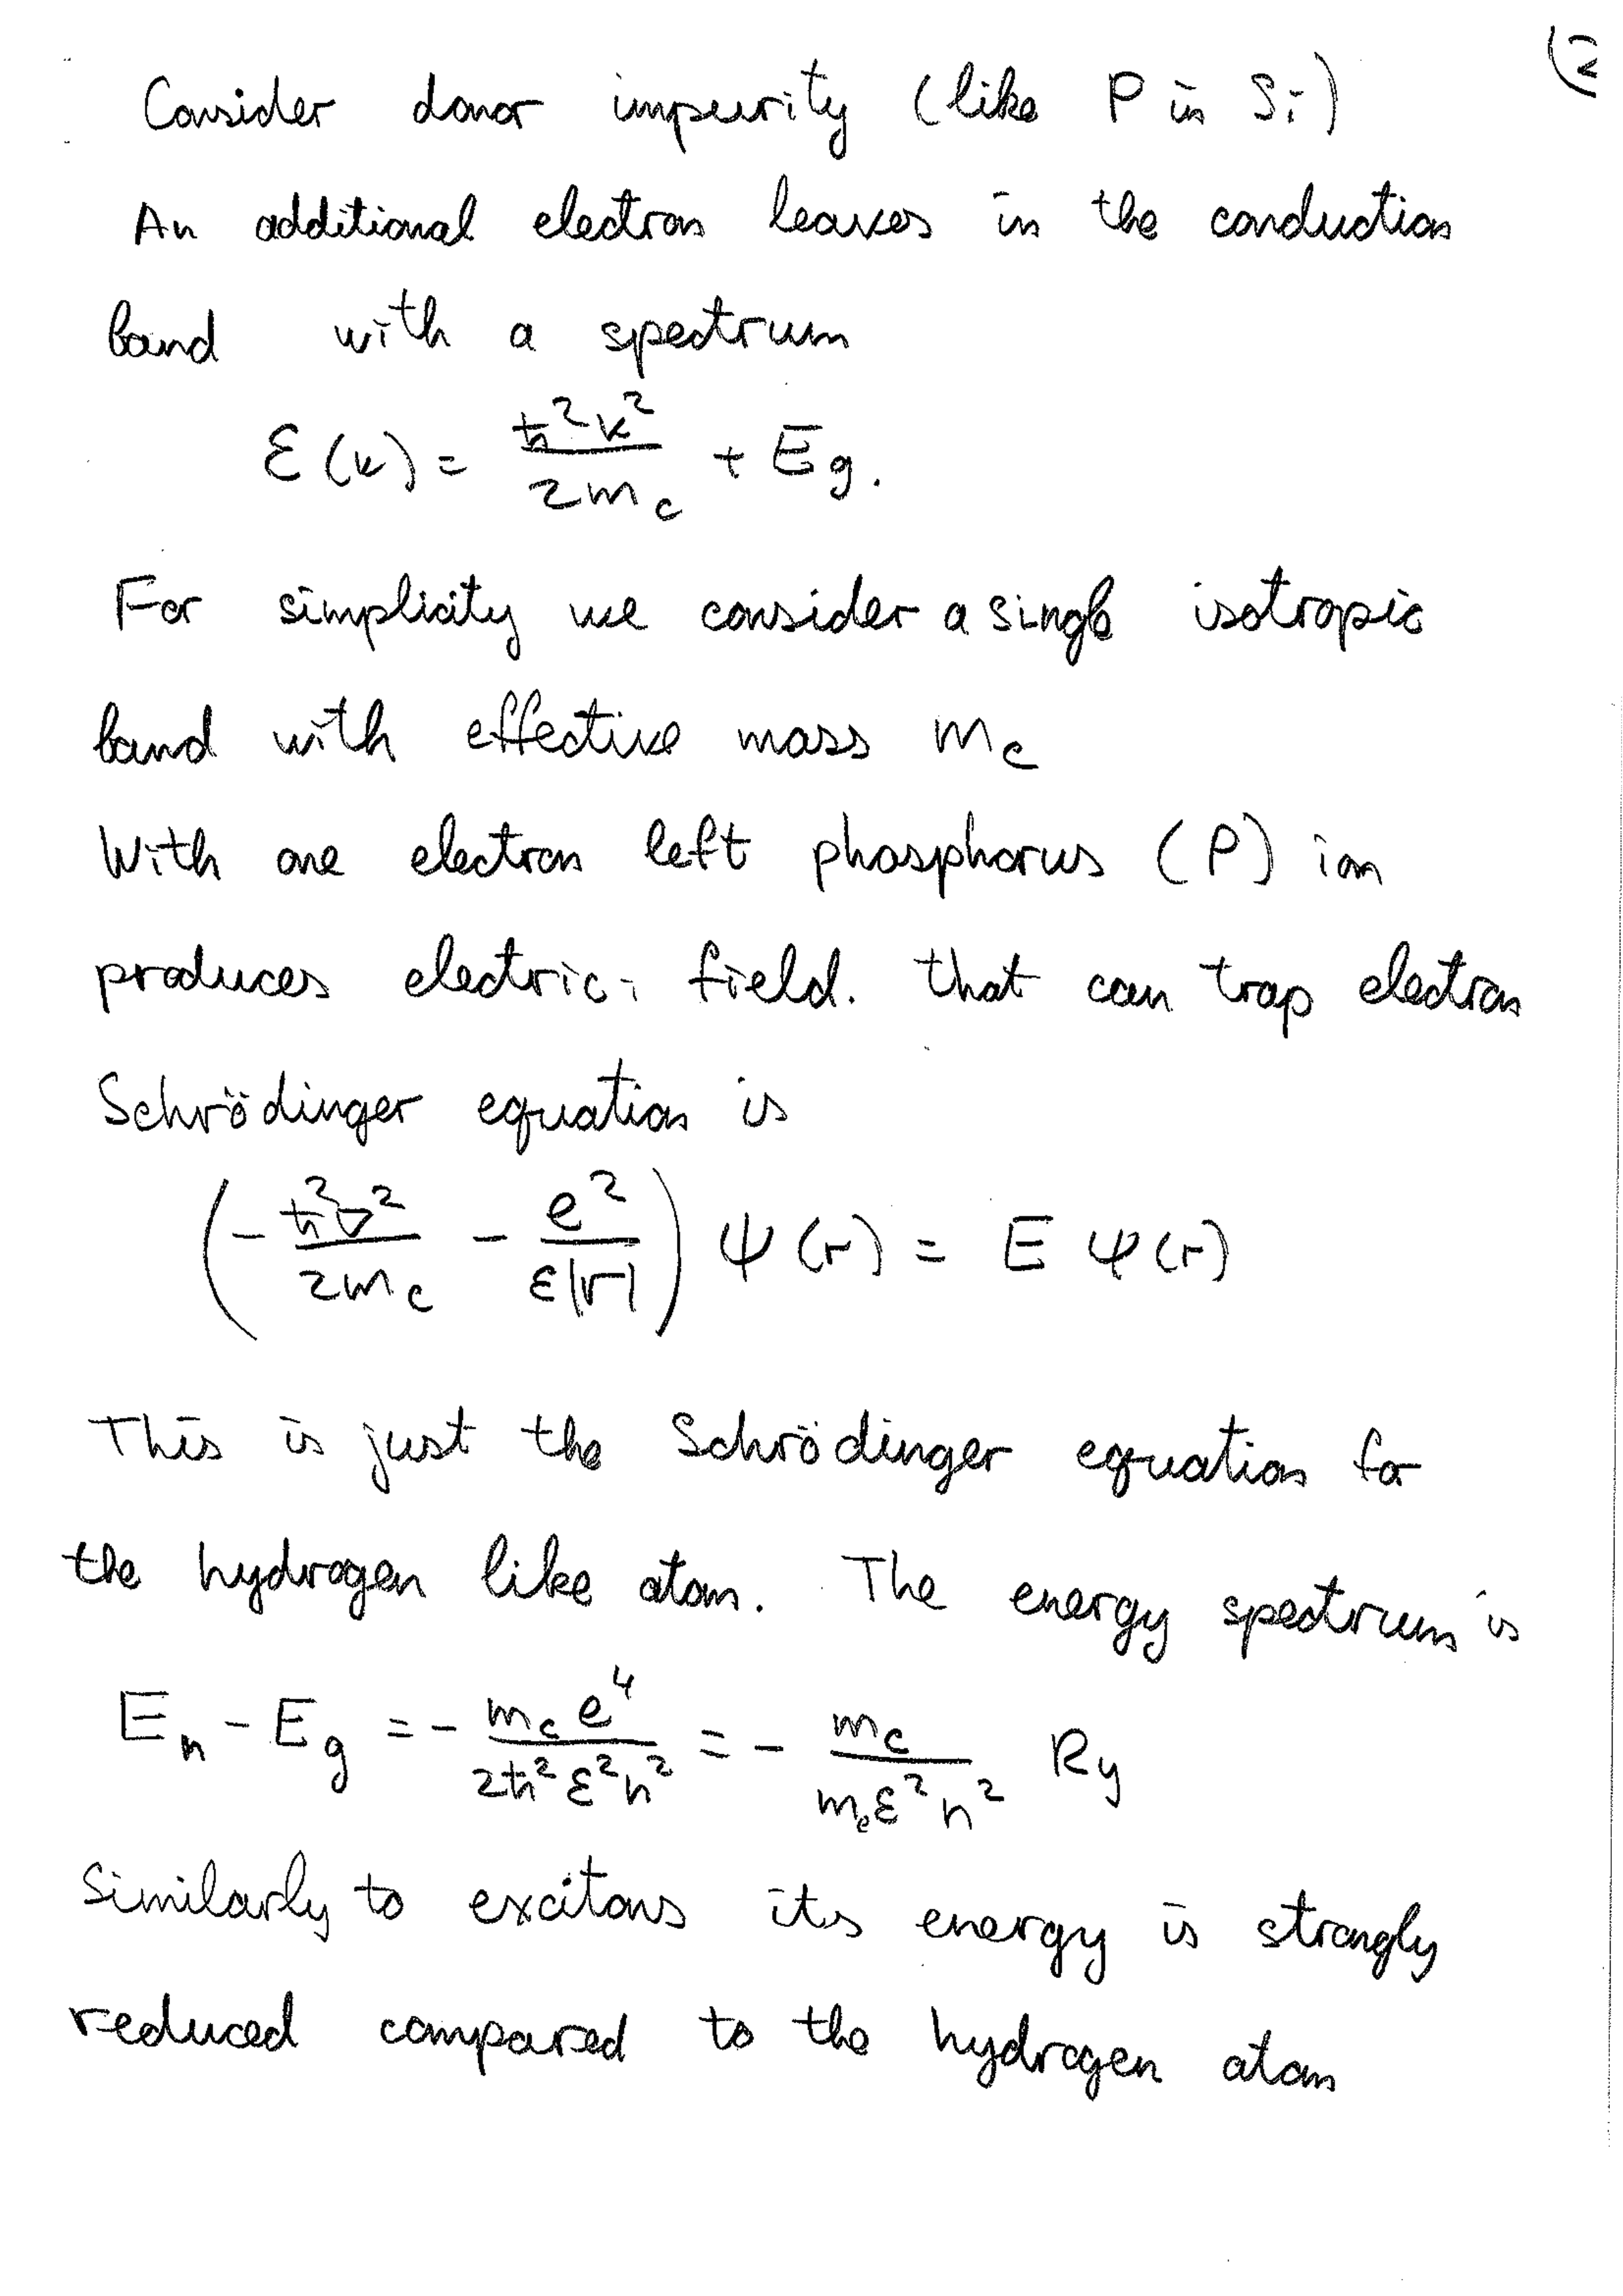 (2
Consider donor impurity (like P in Si)
An additional electron leaves in the conduction
band with a spectrum
ε(k) = ħ²k²/2m_c + E_g.
For simplicity we consider a single isotropic
band with effective mass m_c
With one electron left phosphorus (P) ion
produces electric field. that can trap electron
Schrödinger equation is
(-ħ²∇²/2m_c - e²/ε|r|) ψ(r) = E ψ(r)
This is just the Schrödinger equation for
the hydrogen like atom. The energy spectrum is
E_n - E_g = - m_c e⁴/2ħ²ε²n² = - m_c/m_e ε²n² Ry
Similarly to excitons its energy is strongly
reduced compared to the hydrogen atom